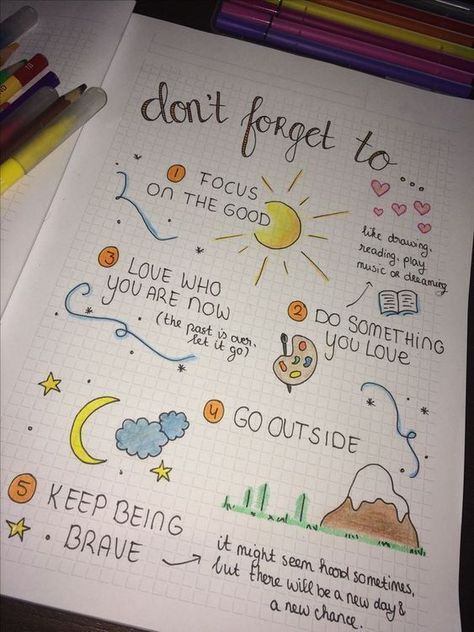 don't forget to...
1 FOCUS
ON THE GOOD
like drawing,
reading, play
music or dreaming
3 LOVE WHO
YOU ARE NOW
(the past is over.
let it go)
2 DO SOMETHING
YOU LOVE
4 GO OUTSIDE
5 KEEP BEING
BRAVE
it might seem hood sometimes,
but there will be a new day &
a new chance.